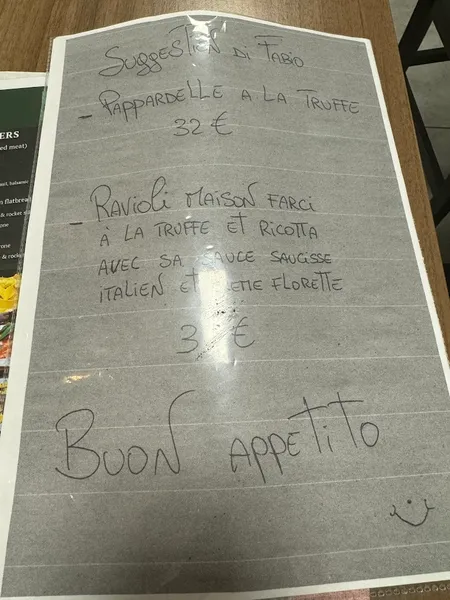 Suggestion di Fabio
- PAPPARDELLE A LA TRUFFE
32 €
- RAVIOLI MAISON FARCI
À LA TRUFFE ET RICOTTA
AVEC SA SAUCE SAUCISSE
ITALIEN ET FLORETTE
3 €
BUON APPETITO
ERS
ed meat)
n flatbrea
& rocket s
one
rone
& rock